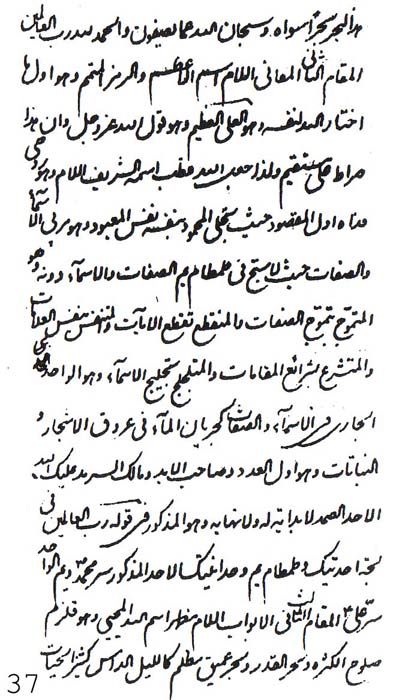 هذا البحر بحر اسواه وسبحان الله عما يصفون والحمد لله رب العالمين
المقام الثاني المعاني اللام اسم الاعظم والرمز المنمنم وهو اول ما
اختار الله لنفسه وهو العلي العظيم وهو قول الله عز وجل وان هذا
صراط علي مستقيم ولذا جعل الله قطب اسمه الشريف اللام وهو
مداه اول المقصود حيث تجلى المحمود بنفسه نفس المعبود وهو مربي الاسماء
والصفات حيث لا في طمطام يم الصفات والاسماء دونه وهو
المتموج بتموج الصفات والمنقطع تقطع الآيات والمتنفس بنفس العلامات
والمتشرع بشرائع المقامات والمتلجلج بتلجلج الاسماء وهو الواحد
الجاري في الاسماء والصفات كجريان الماء في عروق الاشجار و
النباتات وهو اول العدد وصاحب الابد ومالك السرمد عليك الله
الاحد الصمد لا بداية له ولا نهاية وهو المذكور في قوله رب العالمين في
لجة احديتك وطمطام يم وحدانيتك الاحد المذكور سر محمد ويم الواحد
سر علي المقام الثالث الابواب اللام مظهر اسم الله المحيي وهو قلزم
الكثرة وبحر القدر وبحر عميق مظلم كالليل الدامس كثير الحيات
37